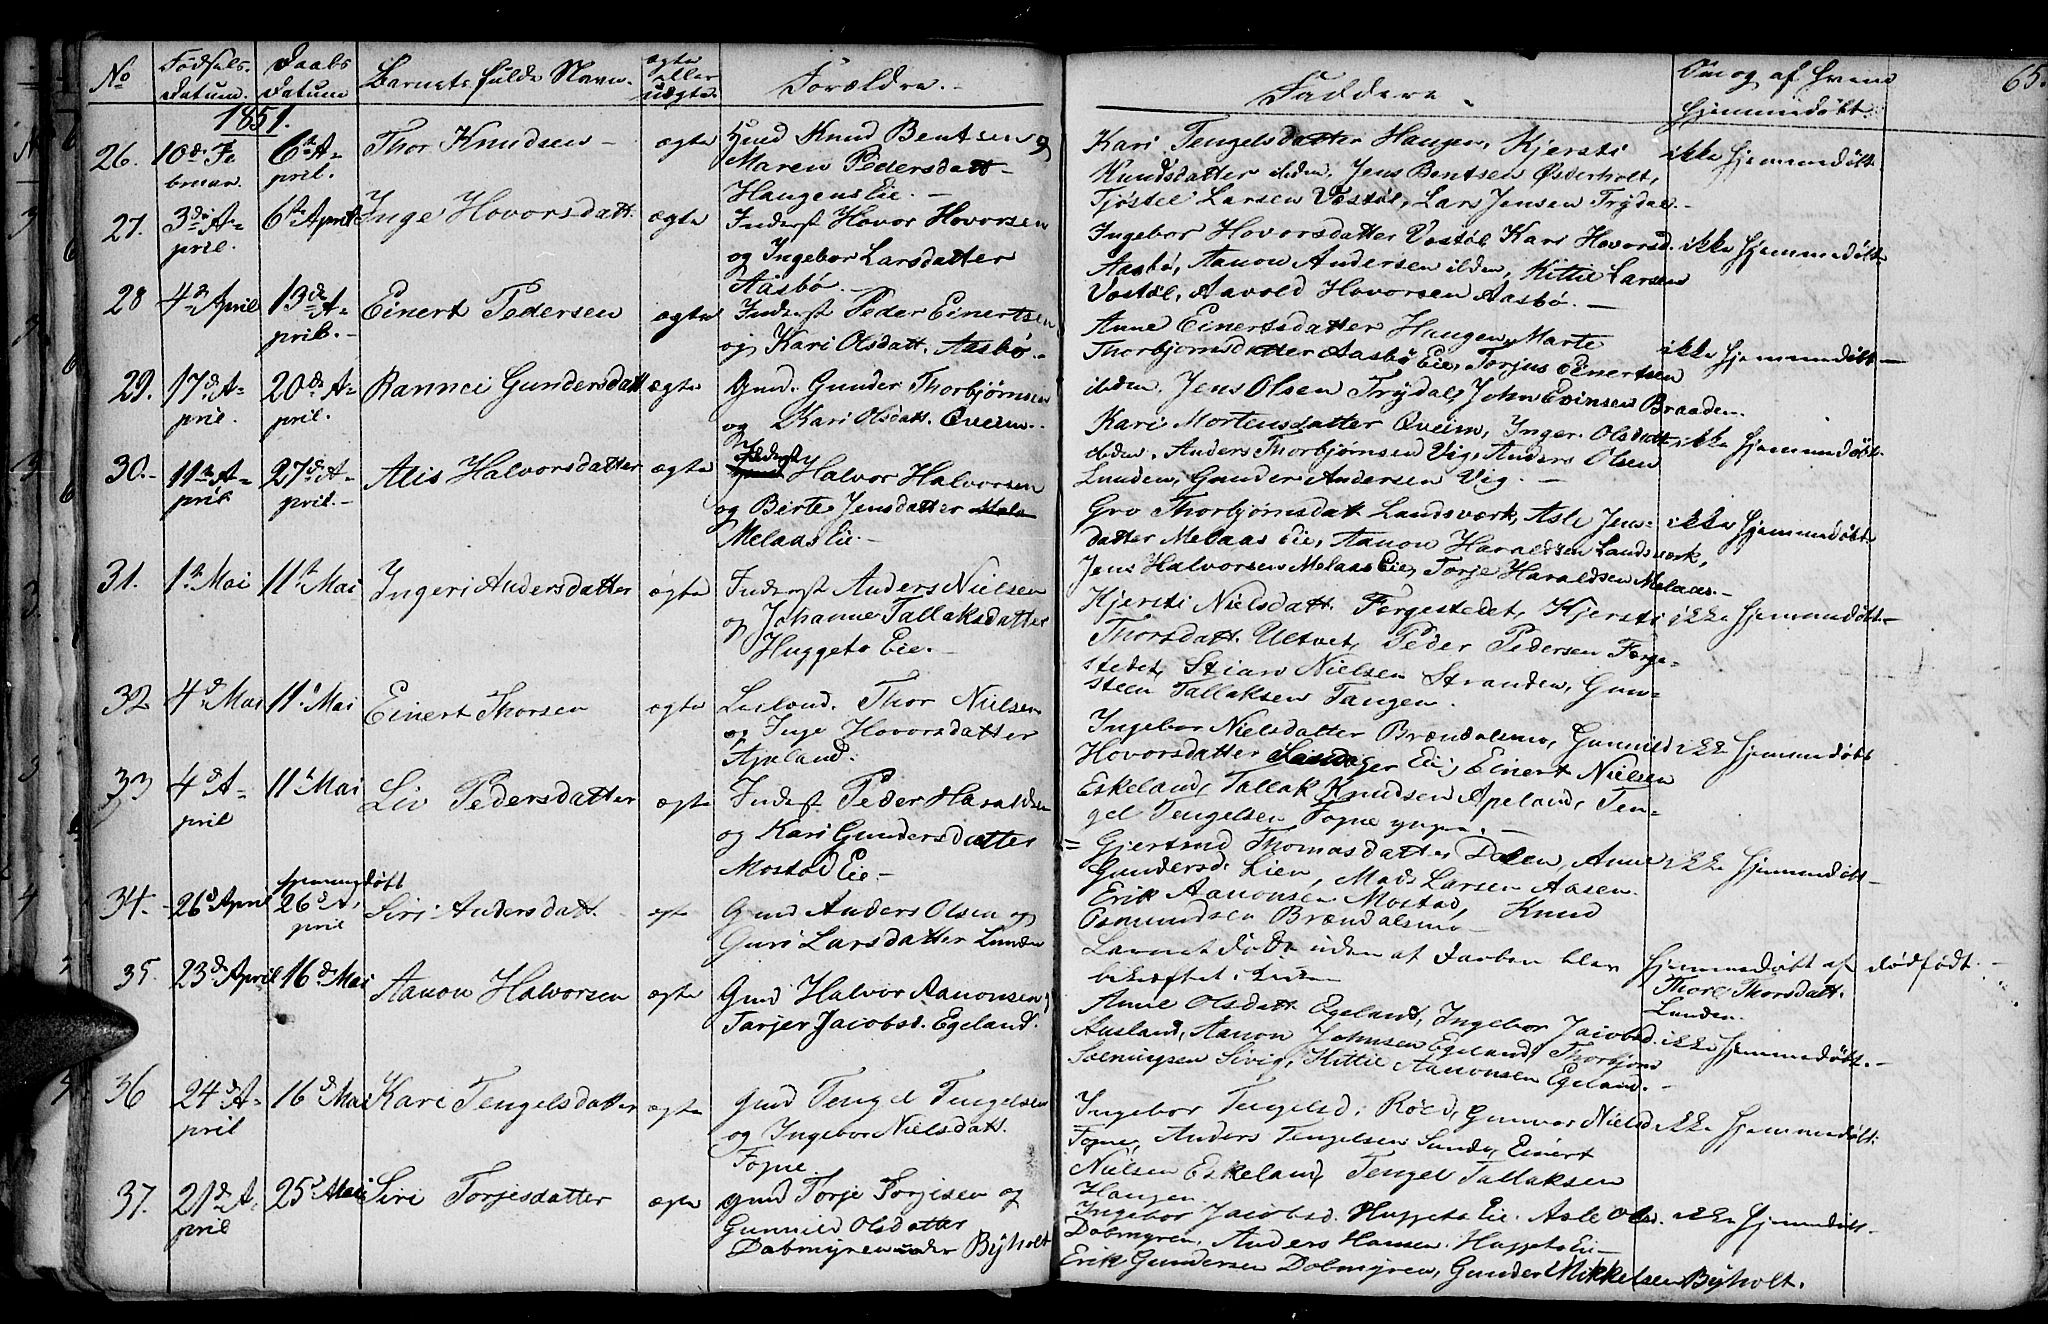 No Fødsels- Datum. Daabs Datum Barnets fulde Navn. ægte eller uægte Forældre. Faddere. Om og af hvem hjemmedøbt. 65.
1851.
26. 10de Fe- 6te A- Thor Knudsen ægte Knud Bentsen og
bruar. pril. Maren Pedersdatt
Haugens Eie.
Kari Tengelsdatter Haugen, Kjersti
Knudsdatter ibden, Jens Bentsen Østerholt,
Tjøstel Larsen Vostøl, Lars Jensen Trydal.
ikke hjemmedøbt
27. 3die A- 6te April Inge Hovorsdatt. ægte Inderst Hovor Hovorsen
pril. og Ingebor Larsdatter
Aasbø.
Ingebor Hovorsdatter Vostøl, Kari Hovorsd.
Aasbø, Aanon Andersen ibden, Kittil Larsen
Vostøl, Aavold Hovorsen Aasbø.
ikke hjemmedøbt
28 4de April 13de A- Einert Pedersen ægte Inderst Peder Einertsen
pril. og Kari Olsdatt. Aasbø.
Anne Einertsdatter Haugen, Marte
Thorbjørnsdatter Aasbø Eie, Torjus Einertsen
ibden, Jens Olsen Trydal, John Evinsen Braaden.
ikke hjemmedøbt
29. 17de A- 20de A- Rannei Gundersdatt ægte Gmd. Gunder Thorbjørnsen
pril. pril. og Kari Olsdatt. Qveim.
Kari Mortensdatter Qveim, Inger Olsdatt.
ibden, Anders Thorbjørnsen Vig, Anders Olsen
Lunden, Gunder Andersen Vig.
ikke hjemmedøbt
30. 11te A- 27de A- Alis Halvorsdatter ægte Inderst Halvor Halvorsen
pril pril. og Birte Jensdatter
Melaas Eie.
Gro Thorbjørnsdatt. Landsværk, Asle Jens-
datter Melaas Eie, Aanon Haraldsen Landsværk,
Jens Halvorsen Melaas Eie, Torje Haraldsen Melaas.
ikke hjemmedøbt
31. 1te Mai 11te Mai Ingeri Andersdatter ægte Inderst Anders Nielsen
og Johanne Tallaksdatter
Huggeto Eie.
Kjersti Nielsdatt. Forgestedet, Kjersti
Thorsdatt. Ultvet, Peder Pedersen Forge-
stedet, Stian Nielsen Stranden, Gun-
steen Tallaksen Tangen.
ikke hjemmedøbt
32. 4de Mai 11te Mai Einert Thorsen ægte Leiland. Thor Nielsen
og Inge Hovorsdatter
Apeland.
Ingebor Nielsdatter Brændalsmo, Gunnild
Hovorsdatter Eie, Einert Nielsen
Eskeland, Tallak Knudsen Apeland, Ten-
gel Tengelsen Fopne yngre.
ikke hjemmedøbt
33 4de A- 11te Mai Liv Pedersdatter ægte Inderst Peder Haraldsen
pril og Kari Gundersdatter
Mostad Eie.
Gjertrud Thomasdatter Dalen, Anne
Gundersd. Lien, Mads Larsen Aasen
Erik Aanonsen Mostad, Knud
Osmundsen Brændalsmo
ikke hjemmedøbt
34. 26de April hjemmedøbt 26de A- Siri Andersdatt. ægte Gmd Anders Olsen og
pril Guri Larsdatter Lunden
Barnet døde uden at Daaben blev
bekræftet i Kirken
hjemmedøbt af Thore Thorsdatt. Lunden.
dødfødt.
35. 23de April 16de Mai Aanon Halvorsen ægte Gmd Halvor Aanonsen
Tarjer Jacobsd. Egeland.
Anne Olsdatt. Egeland, Ingebor Jacobsd.
Ausland, Aanon Johnsen Egeland, Thorbjørn
Salmingsen Sivig, Kittil Aanonsen Egeland.
ikke hjemmedøbt.
36 24de A- 16de Mai Kari Tengelsdatter ægte Gmd Tengel Tengelsen
pril og Ingebor Nielsdatt.
Fopne.
Ingebor Tengelsd. Røed, Gunvor Nielsd
Fopne, Anders Tengelsen Sunde, Einert
Nielsen Eskeland, Tengel Tallaksen
Haugen
ikke hjemmedøbt
37. 21de A- 25de Mai Siri Torjesdatter ægte Gmd Torje Torjesen og
pril Gunnild Olsdatter
Dobmyren under Byholt
Ingebor Jacobsd. Huggeto Eie. Asle Olsd.
Dobmyren, Anders Hansen Huggeto Eie
Erik Gundersen Dobmyren, Gunder Mikkelsen Byholt.
ikke hjemmedøbt